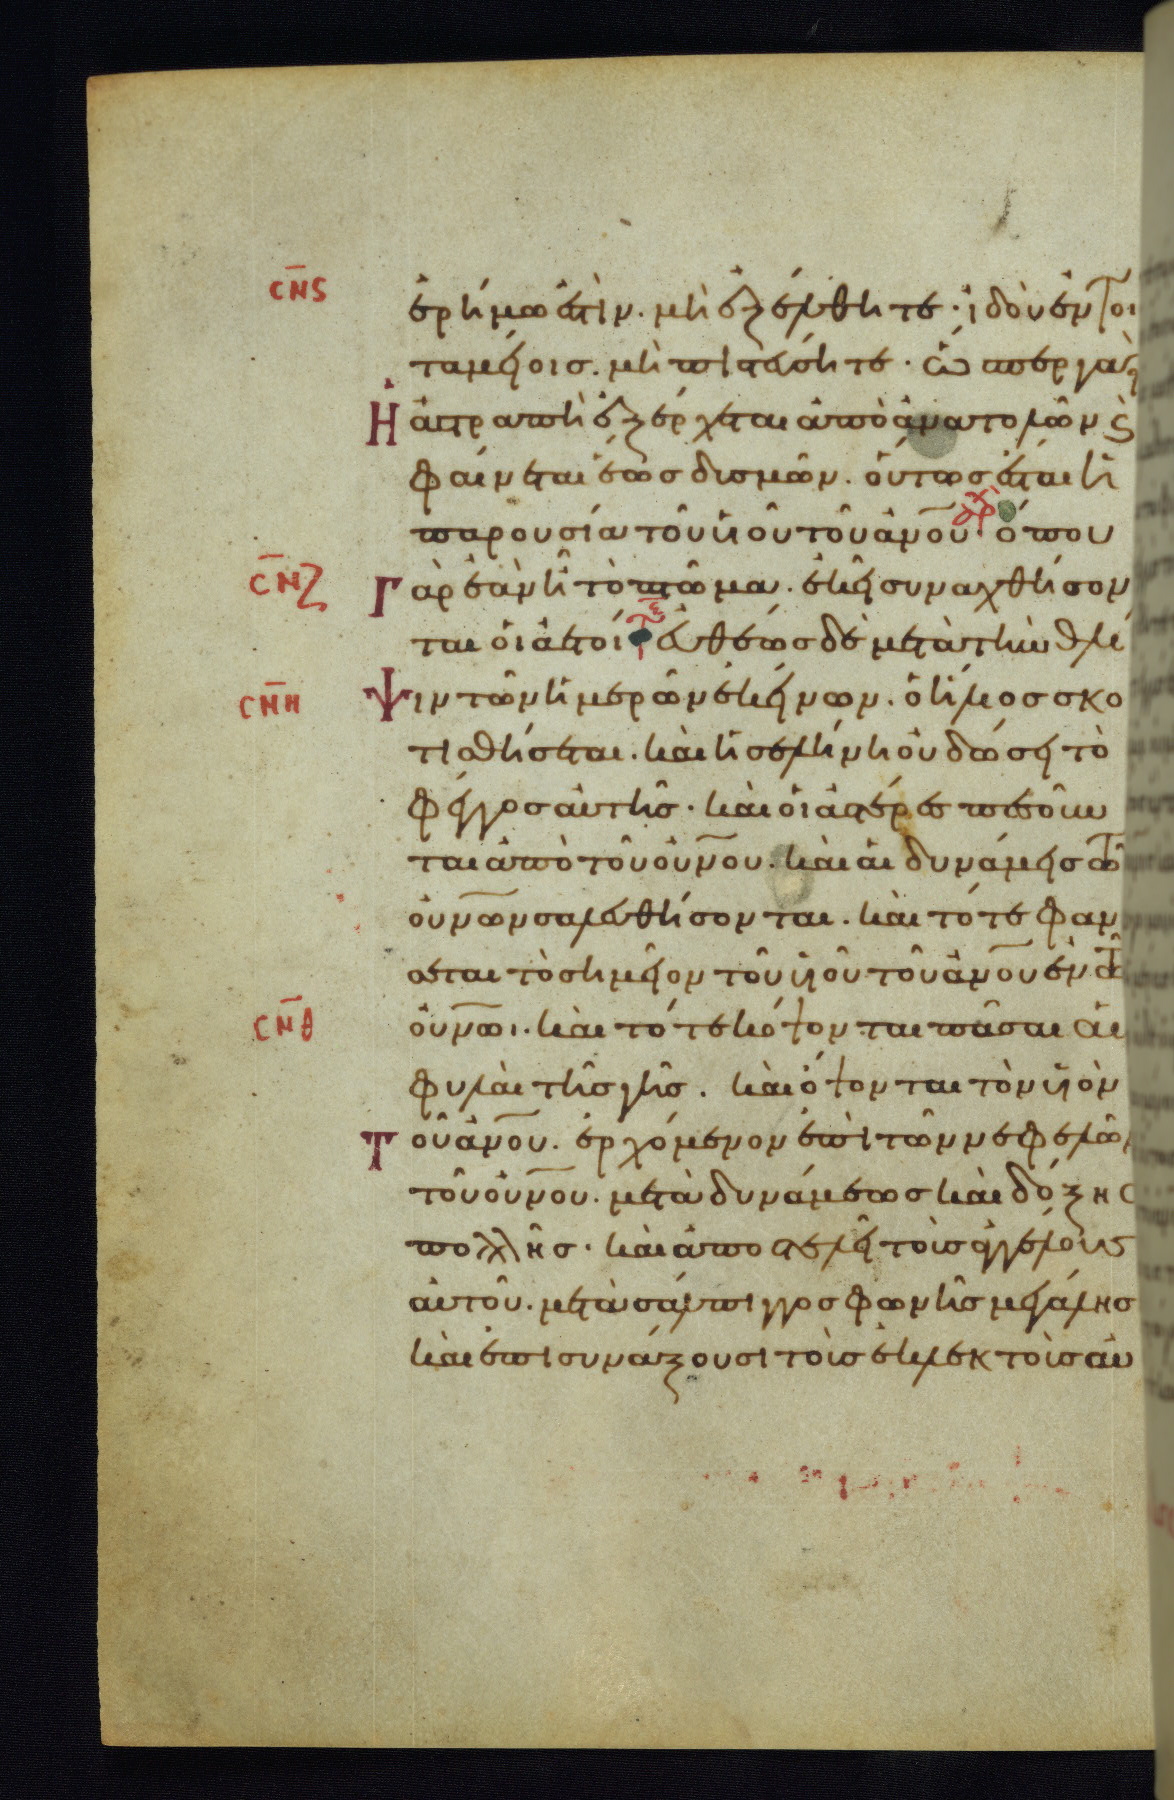 σν̅ς
ἐρήμω ἐστὶν. μὴ ἐξέλθητε· ἰδοὺ ἐν τοῖ
ταμείοις. μὴ πιστεύσητε· ὥσπερ γὰρ
Ἡ ἀστραπὴ ἐξέρχεται ἀπὸ ἀνατολῶν ϗ
φαίνεται ἕως δυσμῶν. οὕτως ἔσται ἡ
παρουσία τοῦ υἱοῦ τοῦ ἀν̅ου· ὅπου
σν̅ζ
Γὰρ ἐὰν ἦ τὸ πτῶμα. ἐκεῖ συναχθήσον
ται οἱ ἀετοί εὐθέως δὲ μετὰ τὴν θλί
σν̅η
Ψιν τῶν ἡμερῶν ἐκείνων. ὁ ἥλιος σκο
τισθήσεται. καὶ ἡ σελήνη οὐ δώσει τὸ
φέγγος αὐτῆς· καὶ οἱ ἀστέρες πεσοῦν
ται ἀπὸ τοῦ οὐν̅ου. καὶ αἱ δυνάμεις τῶν
οὐν̅ων σαλευθήσονται. καὶ τότε φαν
σεται τὸ σημεῖον τοῦ υἱοῦ τοῦ ἀν̅ου ἐν τῶ
σν̅θ
οὐν̅ωι. καὶ τότε κόψονται πᾶσαι αἱ
φυλαὶ τῆς γῆς. καὶ ὄψονται τὸν υἱὸν
Τοῦ ἀν̅ου. ἐρχόμενον ἐπὶ τῶν νεφελῶν
τοῦ οὐν̅ου. μετὰ δυνάμεως καὶ δόξης
πολλῆς· καὶ ἀποστελεῖ τοὺς ἀγγέλους
αὐτοῦ. μετὰ σάλπιγγος φωνῆς μεγάλης
καὶ ἐπισυνάξουσι τοὺς ἐκλεκτοὺς αὐ